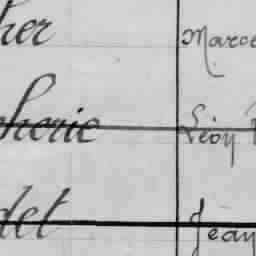 her Marce
cherie Léon
det Jean